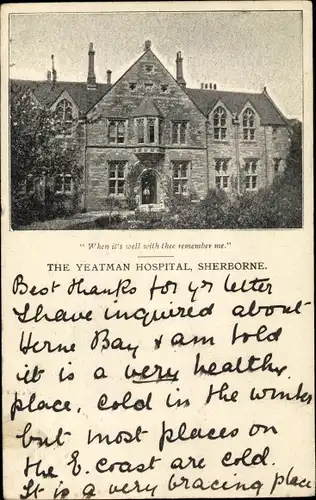 "When it's well with thee remember me."
THE YEATMAN HOSPITAL, SHERBORNE.
Best thanks for yr letter
I have inquired about
Herne Bay & am told
it is a very healthy
place, cold in the winter
but most places on
the E. coast are cold.
It is a very bracing place